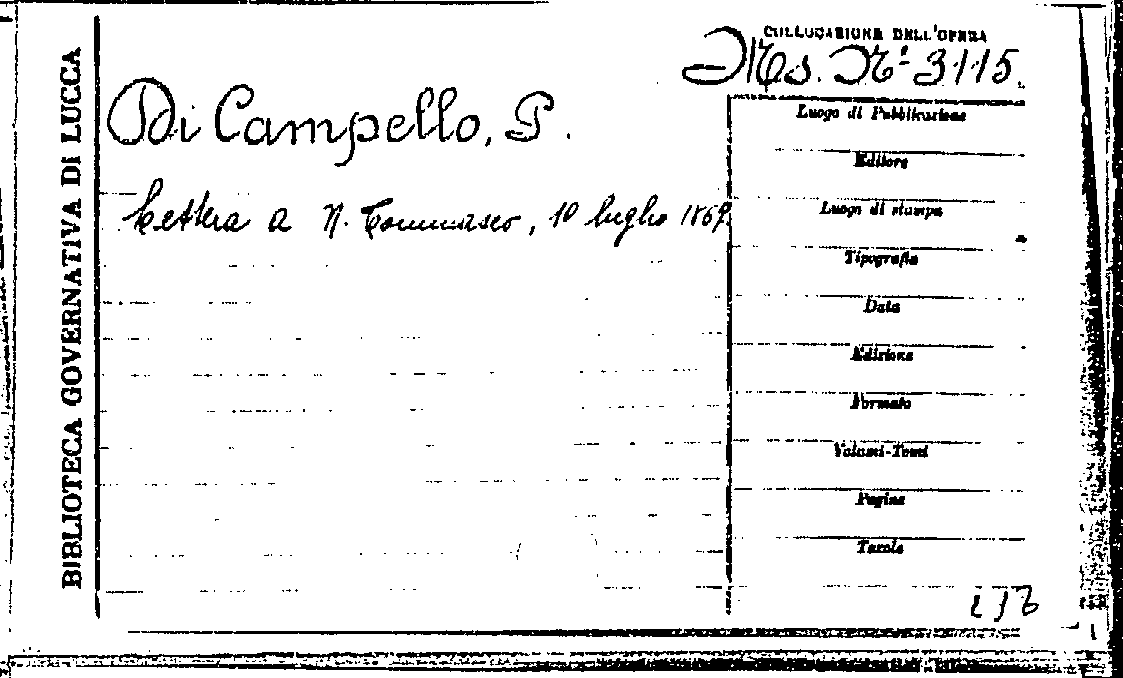 BIBLIOTECA GOVERNATIVA DI LUCCA
COLLOCAZIONE DELL'OPERA
Ms. N.º 3115.
Di Campello, P.
Lettera a N. Tommaseo, 10 luglio 1869.
Luogo di Pubblicazione
Editore
Luogo di stampa
Tipografia
Data
Edizione
Formato
Volumi-Tomi
Pagine
Tavole